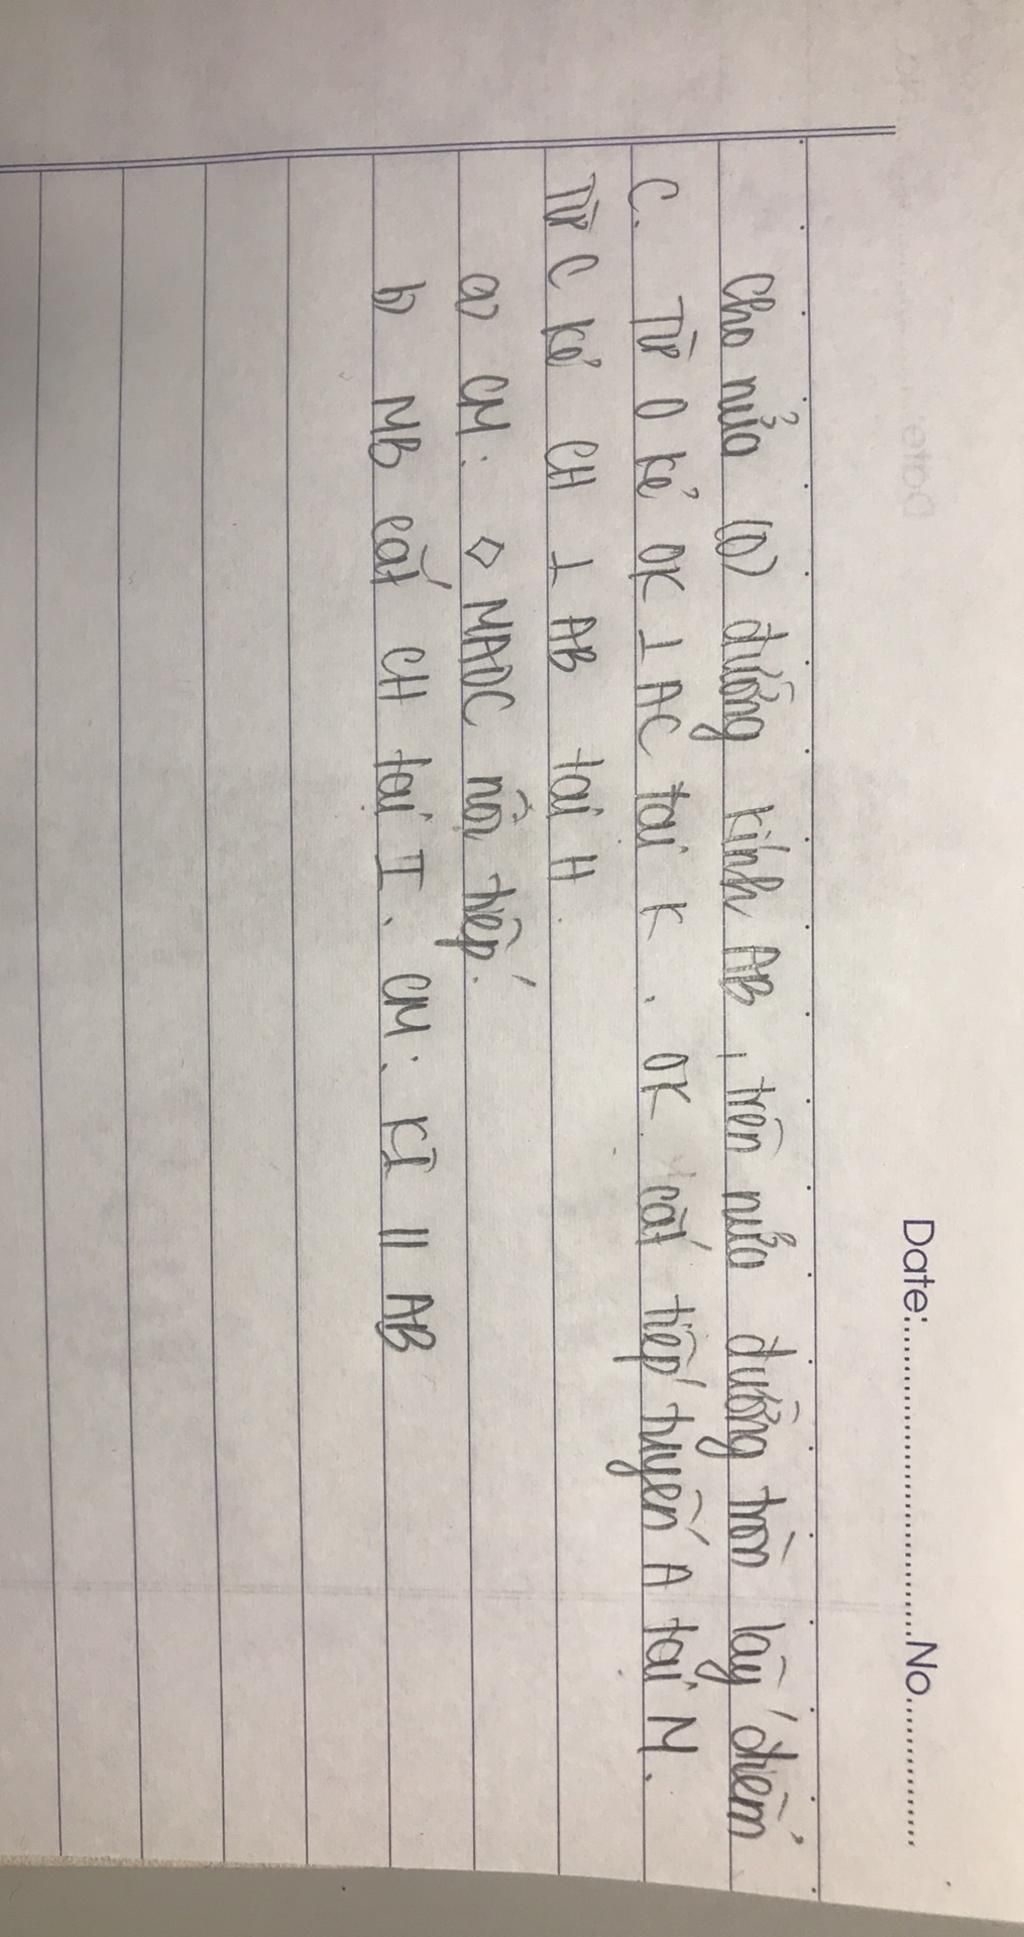 Date:..............................No..............
Cho nửa (O) đường kính AB, trên nửa đường tròn lấy điểm
C. Từ O kẻ OK ⊥ AC tại K. OK cắt tiếp tuyến A tại M.
Từ C kẻ CH ⊥ AB tại H.
a) CM: ◇ MAOC nội tiếp.
b) MB cắt CH tại I. CM: KI // AB